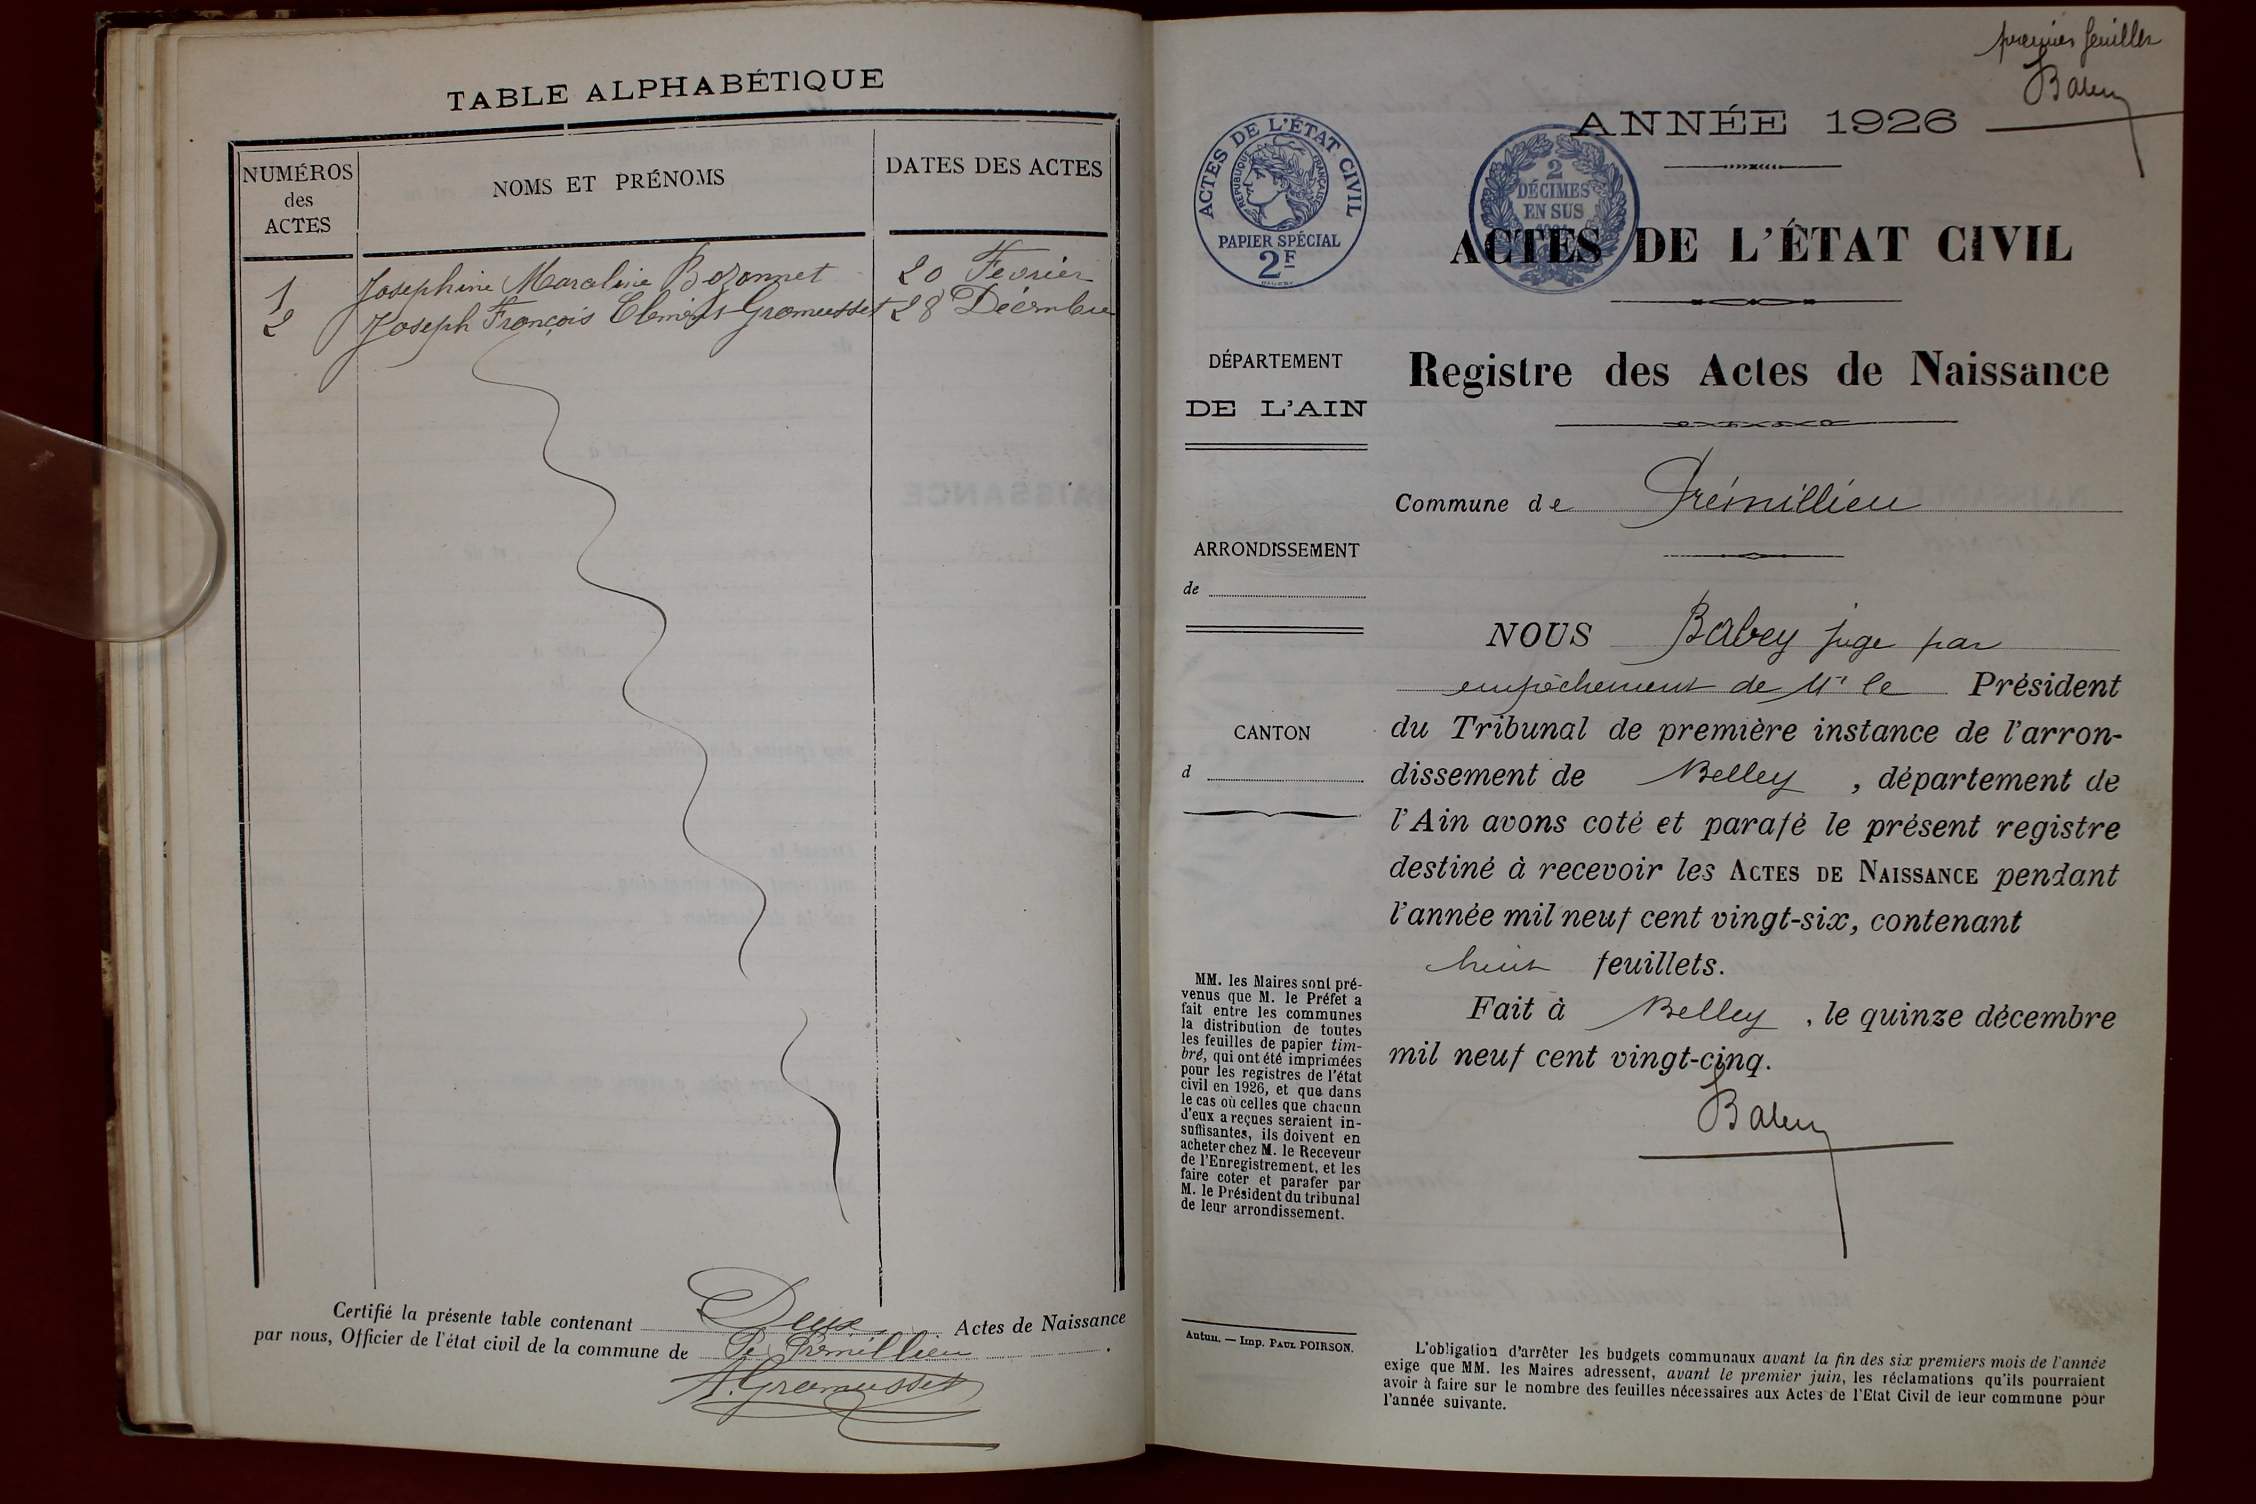 TABLE ALPHABÉTIQUE
NUMÉROS
des
ACTES
NOMS ET PRÉNOMS
DATES DES ACTES
1 Josephine Marceline Bozonnet 20 Fevrier
2 Joseph François Clément Gromusset 28 Décembre
Certifié la présente table contenant Deux Actes de Naissance
par nous, Officier de l'état civil de la commune de De Prémillieu.
A. Gramusset
premier feuillet
Babey
ANNÉE 1926
ACTES DE L'ÉTAT CIVIL
RÉPUBLIQUE FRANÇAISE
PAPIER SPÉCIAL
2F
2
DÉCIMES
EN SUS
ACTES DE L'ÉTAT CIVIL
Registre des Actes de Naissance
DÉPARTEMENT
DE L'AIN
ARRONDISSEMENT
de
CANTON
d
MM. les Maires sont pré-
venus que M. le Préfet a
fait entre les communes
la distribution de toutes
les feuilles de papier tim-
bré, qui ont été imprimées
pour les registres de l'état
civil en 1926, et que dans
le cas où celles que chacun
d'eux a reçues seraient in-
suffisantes, ils doivent en
acheter chez M. le Receveur
de l'Enregistrement, et les
faire coter et parafer par
M. le Président du tribunal
de leur arrondissement.
Autun. — Imp. PAUL POIRSON.
Commune de Prémillieu
NOUS Babey juge par
empêchement de Mr le Président
du Tribunal de première instance de l'arron-
dissement de Belley, département de
l'Ain avons coté et parafé le présent registre
destiné à recevoir les ACTES DE NAISSANCE pendant
l'année mil neuf cent vingt-six, contenant
huit feuillets.
Fait à Belley, le quinze décembre
mil neuf cent vingt-cinq.
Babey
L'obligation d'arrêter les budgets communaux avant la fin des six premiers mois de l'année
exige que MM. les Maires adressent, avant le premier juin, les réclamations qu'ils pourraient
avoir à faire sur le nombre des feuilles nécessaires aux Actes de l'Etat Civil de leur commune pour
l'année suivante.